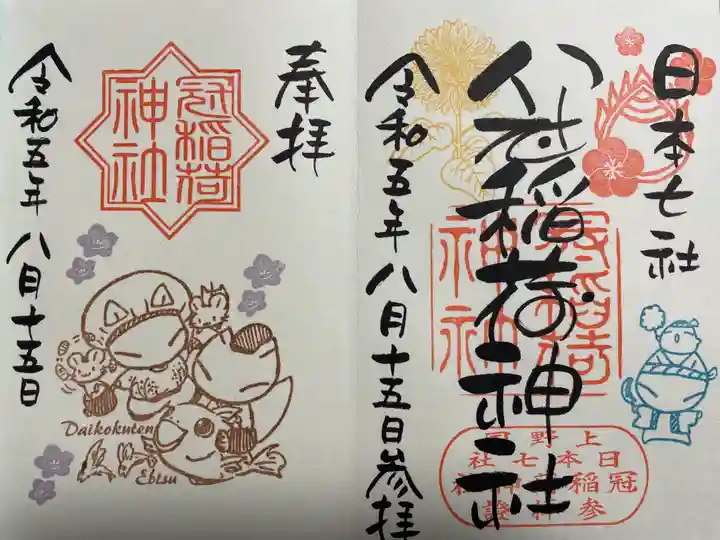 日本七社
稲荷神社
令和五年八月十五日参拝
冠稲荷
神社
上野国
日本七社
冠稲荷神社
参拝證
奉拝
冠稲荷
神社
令和五年八月十五日
Daikokuten
Ebisu